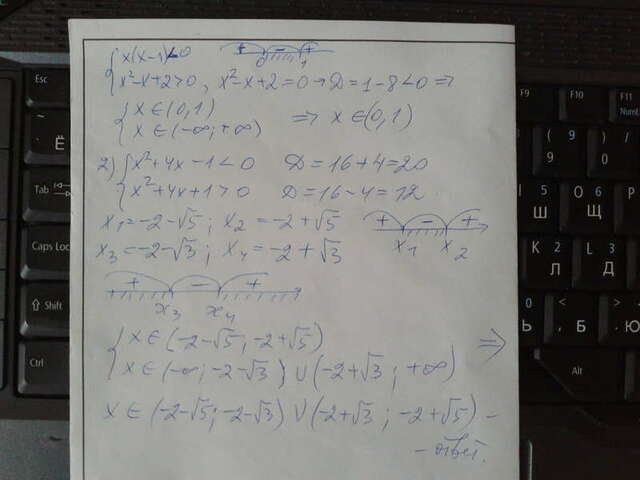 { x(x-1)<0   + - + 0 1
{ x²-x+2>0, x²-x+2=0 → D=1-8<0 ⇒
{ x∈(0,1)
{ x∈(-∞;+∞) ⇒ x∈(0,1)
2) { x²+4x-1<0 D=16+4=20
{ x²+4x+1>0 D=16-4=12
x₁=-2-√5; x₂=-2+√5 + - +
x₃=-2-√3; x₄=-2+√3 x₁ x₂
+ - +
x₃ x₄
{ x∈(-2-√5; -2+√5)
{ x∈(-∞; -2-√3) ∪ (-2+√3; +∞) ⇒
x∈(-2-√5; -2-√3) ∪ (-2+√3; -2+√5) -
- ответ.
Esc
Ё
Tab
Caps Lock
Shift
Ctrl
F9 F10 F11
NumL
( 9 ) 0
Ш Щ
О Л Д
< , > .
Ь Б Ю
Alt